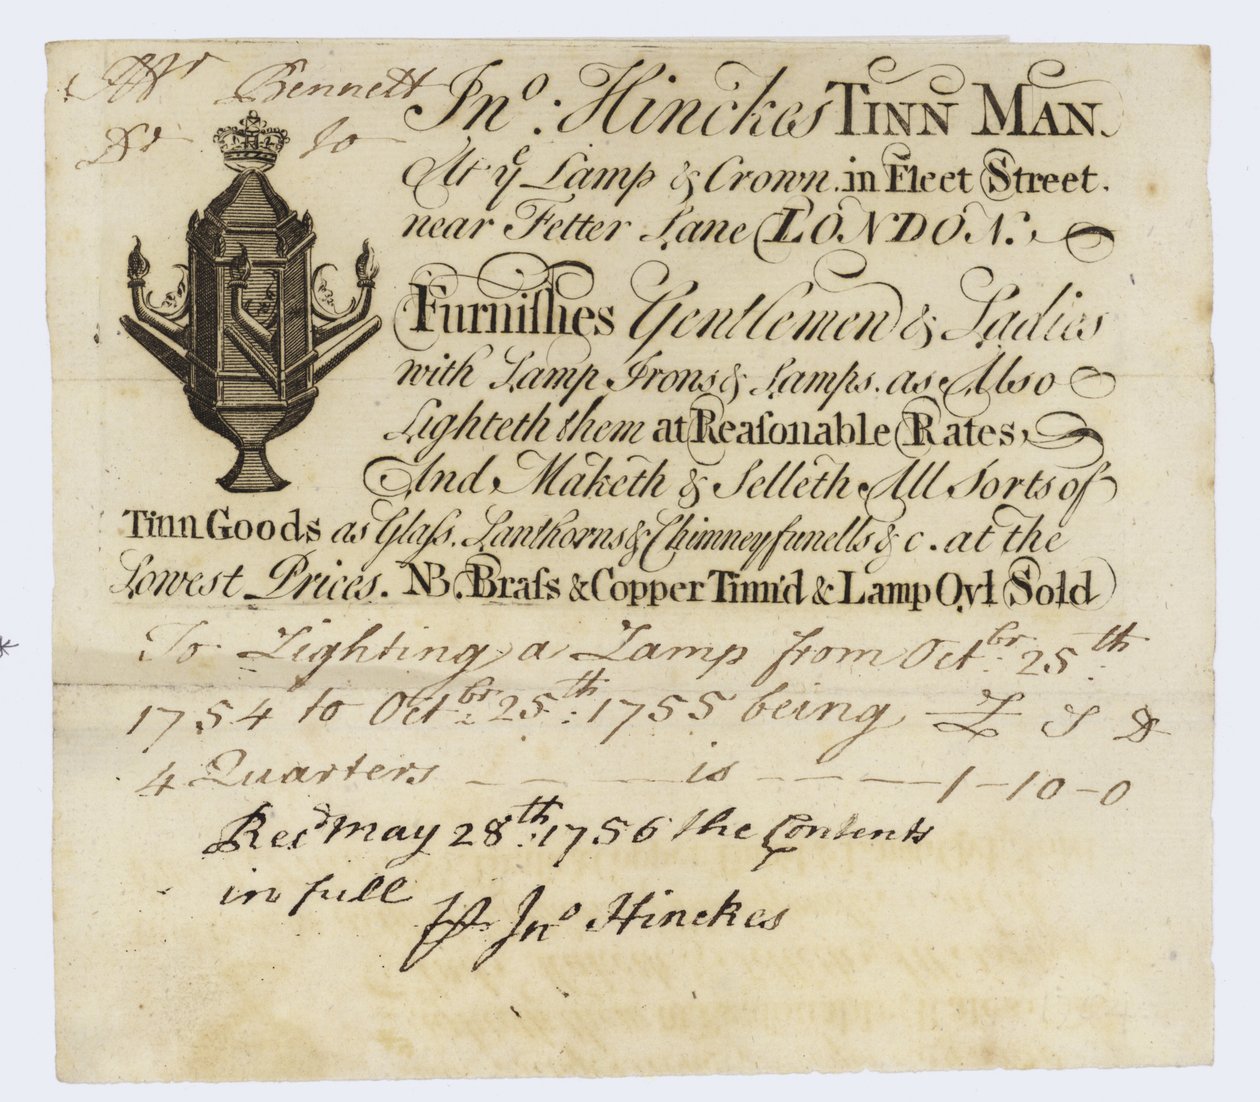 Mr Bennett
Dr to
Jno. Hinckes TINN MAN.
At ye Lamp & Crown in Fleet Street.
near Fetter Lane LONDON.
Furniſhes Gentlemen & Ladies
with Lamp Irons & Lamps. as Also
Lighteth them at Reaſonable Rates,
And Maketh & Selleth All Sorts of
Tinn Goods as Glaſs. Lanthorns & Chimney funells & c. at the
Lowest Prices. NB. Braſs & Copper Tinn'd & Lamp Oyl Sold
To Lighting a Lamp from Octbr. 25th.
1754 to Octbr. 25th: 1755 being £ S D
4 Quarters — — — is — — — 1 - 10 - 0
Recd May 28th: 1756 the Contents
in full
Jno Hinckes